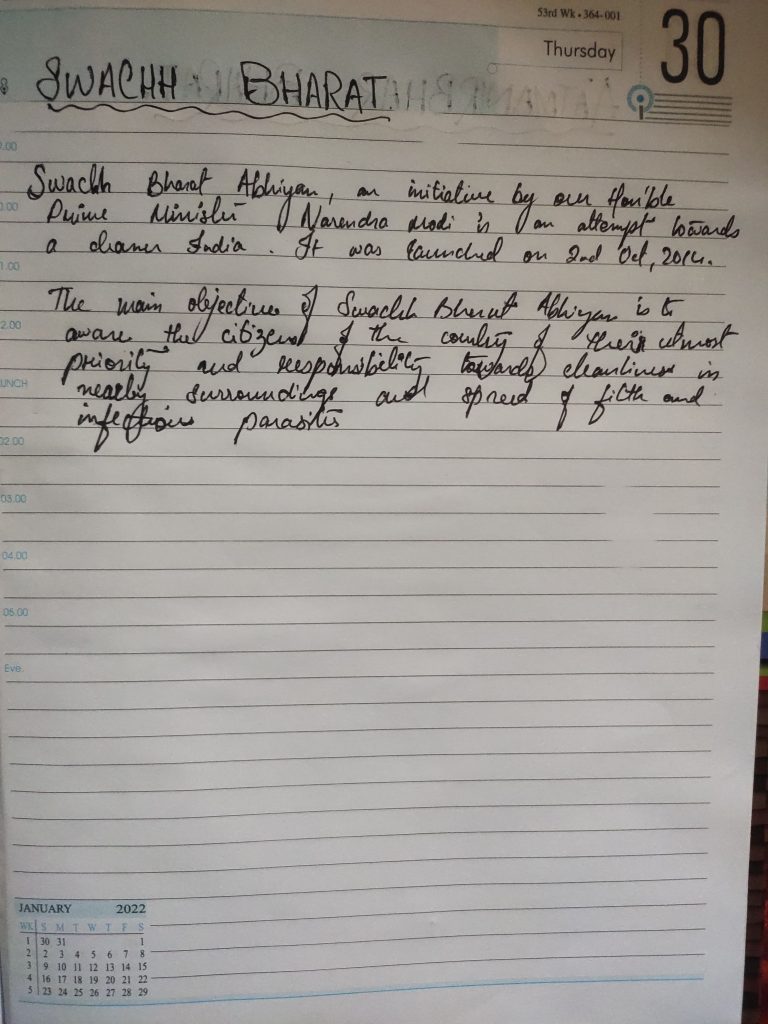 53rd Wk • 364-001
Thursday
30
SWACHH BHARAT
Swachh Bharat Abhiyan, an initiative by our Hon'ble
Prime Minister Narendra Modi is an attempt towards
a cleaner India. It was launched on 2nd Oct, 2014.
The main objective of Swachh Bharat Abhiyan is to
aware the citizens of the country of their utmost
priority and responsibility towards cleanliness in
nearby surroundings and spread of filth and
infectious parasites
.00
0.00
1.00
2.00
UNCH
02.00
03.00
04.00
05.00
Eve.
JANUARY 2022
WK S M T W T F S
1 30 31 1
2 2 3 4 5 6 7 8
3 9 10 11 12 13 14 15
4 16 17 18 19 20 21 22
5 23 24 25 26 27 28 29